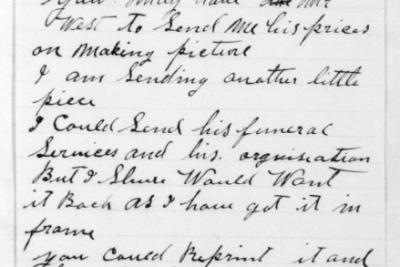 you may have Mr
West to Send Me his prices
on Making picture
I am Sending another little
piece
I Could Send his funeral
Services and his. orgniseation
But I Shure Would Want
it Back As I have got it in
frame
you Could Reprint it and